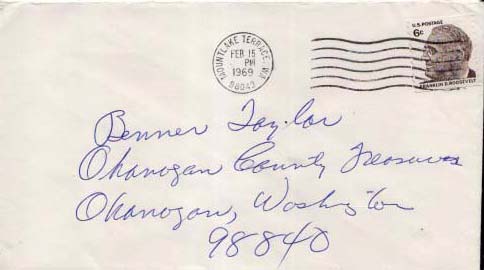 MOUNTLAKE TERRACE, WA
FEB 15
PM
1969
98043
U.S. POSTAGE
6¢
FRANKLIN D. ROOSEVELT
Benner Taylor
Okanogan County Treasurer
Okanogan, Washington
98840